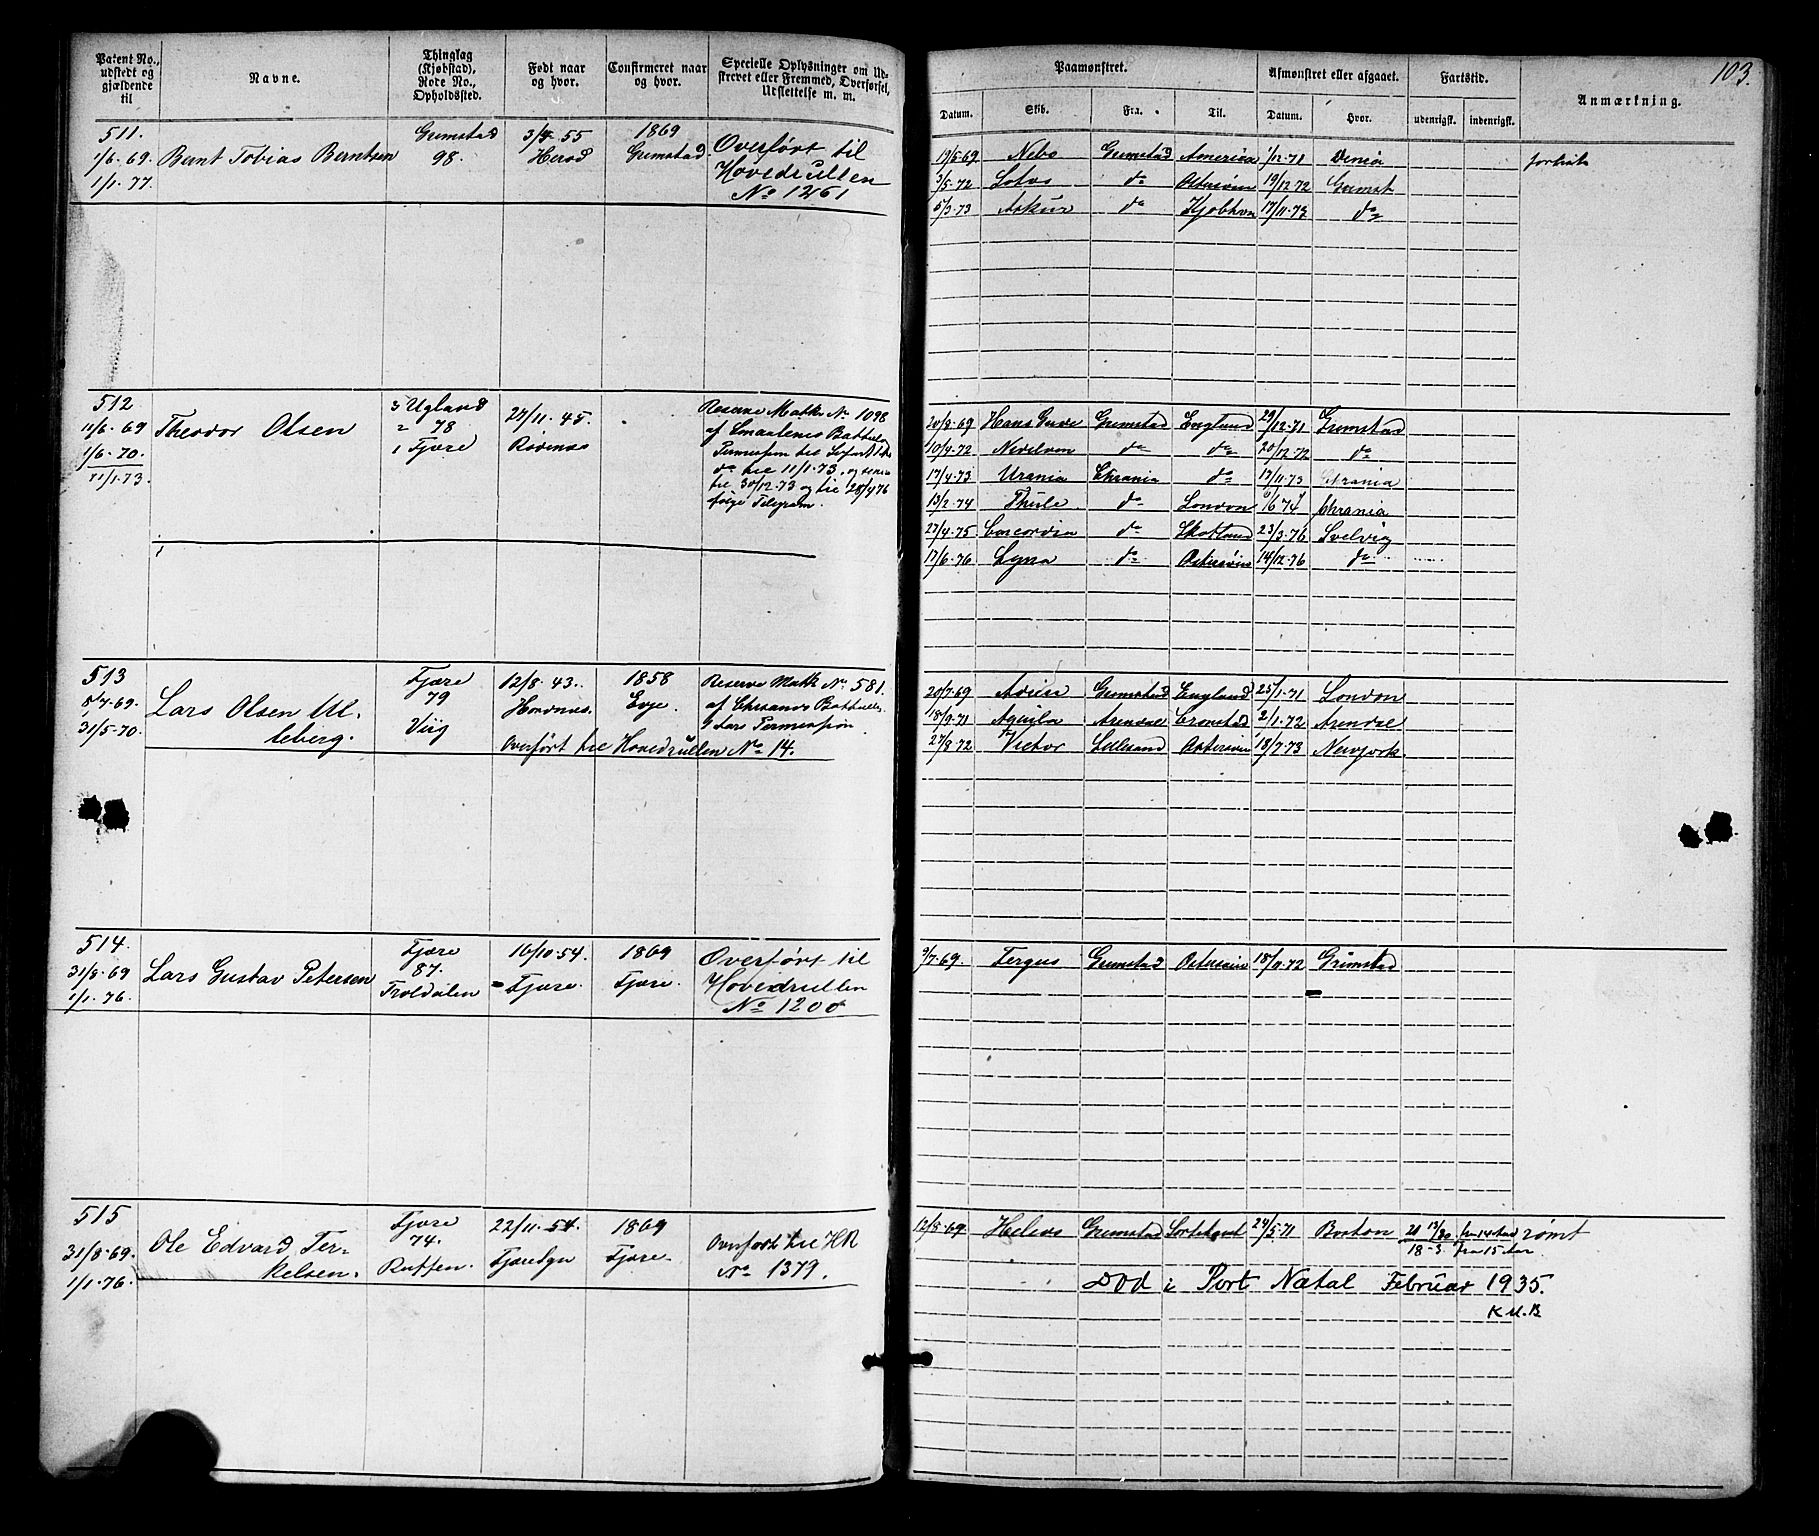 103.
Patent No., udstedt og gjældende til
Navne.
Thinglag (Kjøbstad), Rode No., Opholdssted.
Født naar og hvor.
Confirmeret naar og hvor.
Specielle Oplysninger om Udskrevet eller Fremmed, Overførsel, Udslettelse m. m.
Paamønstret.
Afmønstret eller afgaaet.
Fartstid.
Anmærkning.
Datum. Skib. Fra. Til. Datum. Hvor. udenrigsk. indenrigsk.
511. Grimstad 3/ 55 1869 Overført til
1/6 69. Bernt Tobias Berntsen 98. Herød Grimstad Hovedrullen
1/1 77. No 1261
19/5 69 Nebo Grimstad Amerika 1/12 71
3/5 72 Lotus do Østersøen 19/12 72 Grimst
5/3 73 Askur do Kjøbhvn 17/11 73 do
512 3 Ugland 27/11 45. Reserve Matr. No 1098
11/6 69 Theodor Olsen 78 af Smaalenes Battail
1/6 70. 1 Fjære
11/1 73. do til 11/1 73, og senere
til 30/12 73 og til 28/4 76
følge Telegram.
20/8 69 Grimstad England 29/12 71 Grimstad
10/4 72 do do 20/12 72 do
17/4 73 Urania Chrania do 17/11 73 Chrania
13/2 74 Thule do London 74 Chrania
27/4 75 Concordia do Skotland 23/3 76 Svelvig
17/6 76 do Østersøen 14/12 76 do
513 Fjære 12/8 43. 1858 Reserve Matr. No 581.
8/7 69. Lars Olsen Ul- 79 Hornnes. Evje. af Chrsands Battail
31/5 70. leberg. Viig
Overført til Hovedrullen No 14.
20/7 69 Grimstad England 25/1 71 London
18/9 71 Aquila Arendal Cronstad 2/1 72 Arendal
27/8 72 Victor Lillesand Østersøen 18/7 73 Newyork.
514. Fjære 16/10 54. 1869 Overført til
31/8 69 Lars Gustav Petersen 87. Fjære. Fjære. Hovedrullen
1/1 76. Troldalen No 1200
9/7 69. Fergus Grimstad Østersøen 18/11 72 Grimstad
515 Fjære 22/11 54. 1869 Overført til HR
31/8 69. Ole Edvard Ter- 74. Fjære. No 1379.
1/1 76. kelsen. Ruffen.
12/5 69. Helios Grimstad 29/5 71 Boston rømt
Død i Port Natal Februar 1935.
K.U.B